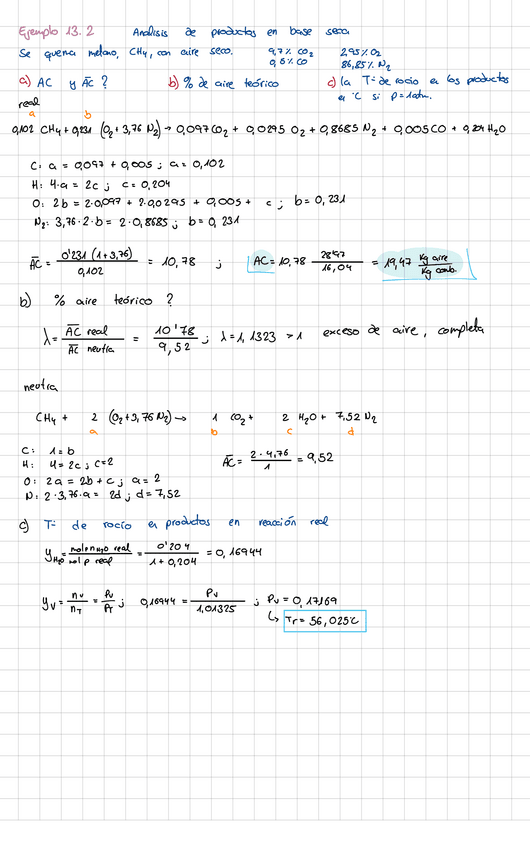 Ejemplo 13.2 Análisis de productos en base seca
Se quema metano, CH₄, con aire seco. 9,7% CO₂ 2,95% O₂
0,5% CO 86,85% N₂
a) AC y A̅C̅? b) % de aire teórico c) la Tª de rocío en los productos
en °C si P=1atm.
real
a b
0,102 CH₄ + 0,231 (O₂ + 3,76 N₂) → 0,097 CO₂ + 0,0295 O₂ + 0,8685 N₂ + 0,005 CO + 0,204 H₂O
C: a = 0,097 + 0,005 ; a = 0,102
H: 4·a = 2c ; c = 0,204
O: 2b = 2·0,097 + 2·0,0295 + 0,005 + c ; b = 0,231
N₂: 3,76·2·b = 2·0,8685 ; b = 0,231
A̅C̅ = 0'231 (1+3,76) / 0,102 = 10,78 ; AC = 10,78 28'97 / 16,04 = 19,47 Kg aire / Kg comb.
b) % aire teórico ?
λ = A̅C̅ real / A̅C̅ neutra = 10'78 / 9,52 ; λ = 1,1323 > 1 exceso de aire, completa
neutra
CH₄ + 2 (O₂ + 3,76 N₂) → 1 CO₂ + 2 H₂O + 7,52 N₂
a b c d
C: 1 = b
H: 4 = 2c ; c = 2
O: 2a = 2b + c ; a = 2
N: 2·3,76·a = 2d ; d = 7,52
A̅C̅ = 2·4,76 / 1 = 9,52
c) Tª de rocío en productos en reacción real
y H₂O = mol p H₂O real / mol p real = 0'204 / 1 + 0,204 = 0,16944
yᵥ = nᵥ / n_T = Pᵥ / P_T ; 0,16944 = Pᵥ / 1,01325 ; Pᵥ = 0,17169
↳ Tr = 56,025°C